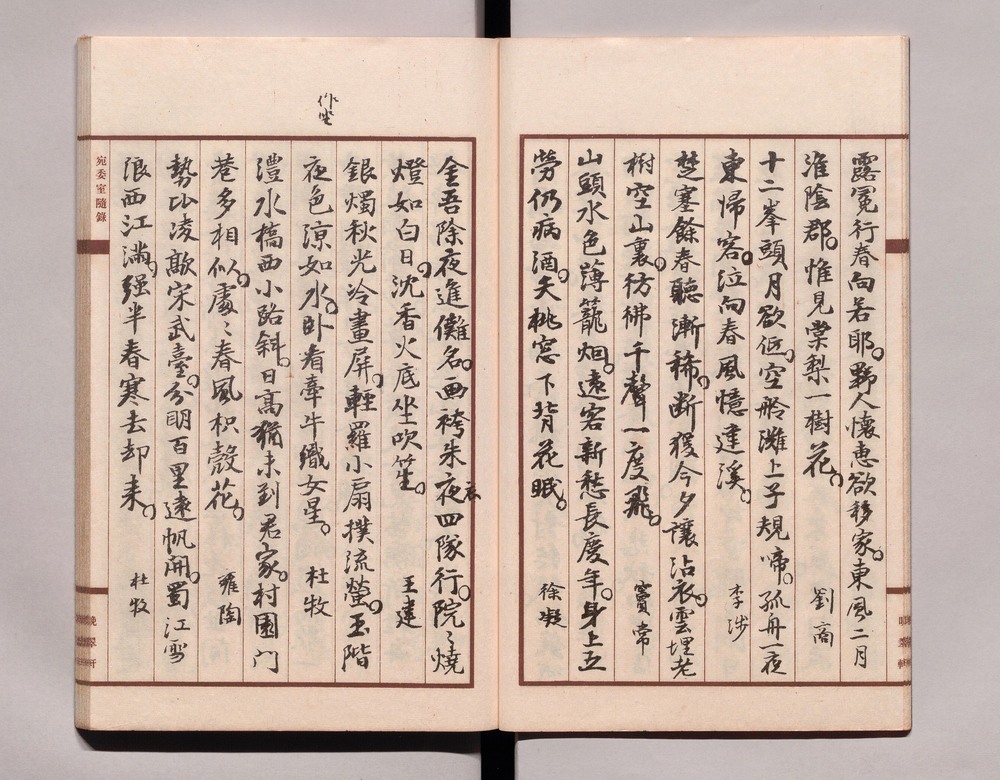 露冕行春向若耶。野人懷惠欲移家。東風二月
淮陰郡。惟見棠梨一樹花。 劉商
十二峯頭月欲低。空舲灘上子規啼。孤舟一夜
東歸客。泣向春風憶建溪。 李涉
楚塞餘春聽漸稀。斷猨今夕讓沾衣。雲埋老
樹空山裏。彷彿千聲一度飛。 竇常
山頭水色薄籠烟。遠客新愁長慶年。身上五
勞仍病酒。夭桃窓下背花眠。 徐凝
作坐
金吾除夜進儺名。畫袴朱夜四隊行。院〻燒
衣
燈如白日。沈香火底坐吹笙。 王建
銀燭秋光冷畫屏。輕羅小扇撲流螢。玉階
夜色涼如水。卧看牽牛織女星。 杜牧
澧水橋西小路斜。日高猶未到君家。村園門
巷多相似。處〻春風枳殼花。 雍陶
勢比凌歊宋武臺。分明百里遠帆開。蜀江雪
浪西江滿。强半春寒去却來。 杜牧
宛委室隨錄
晚翠軒